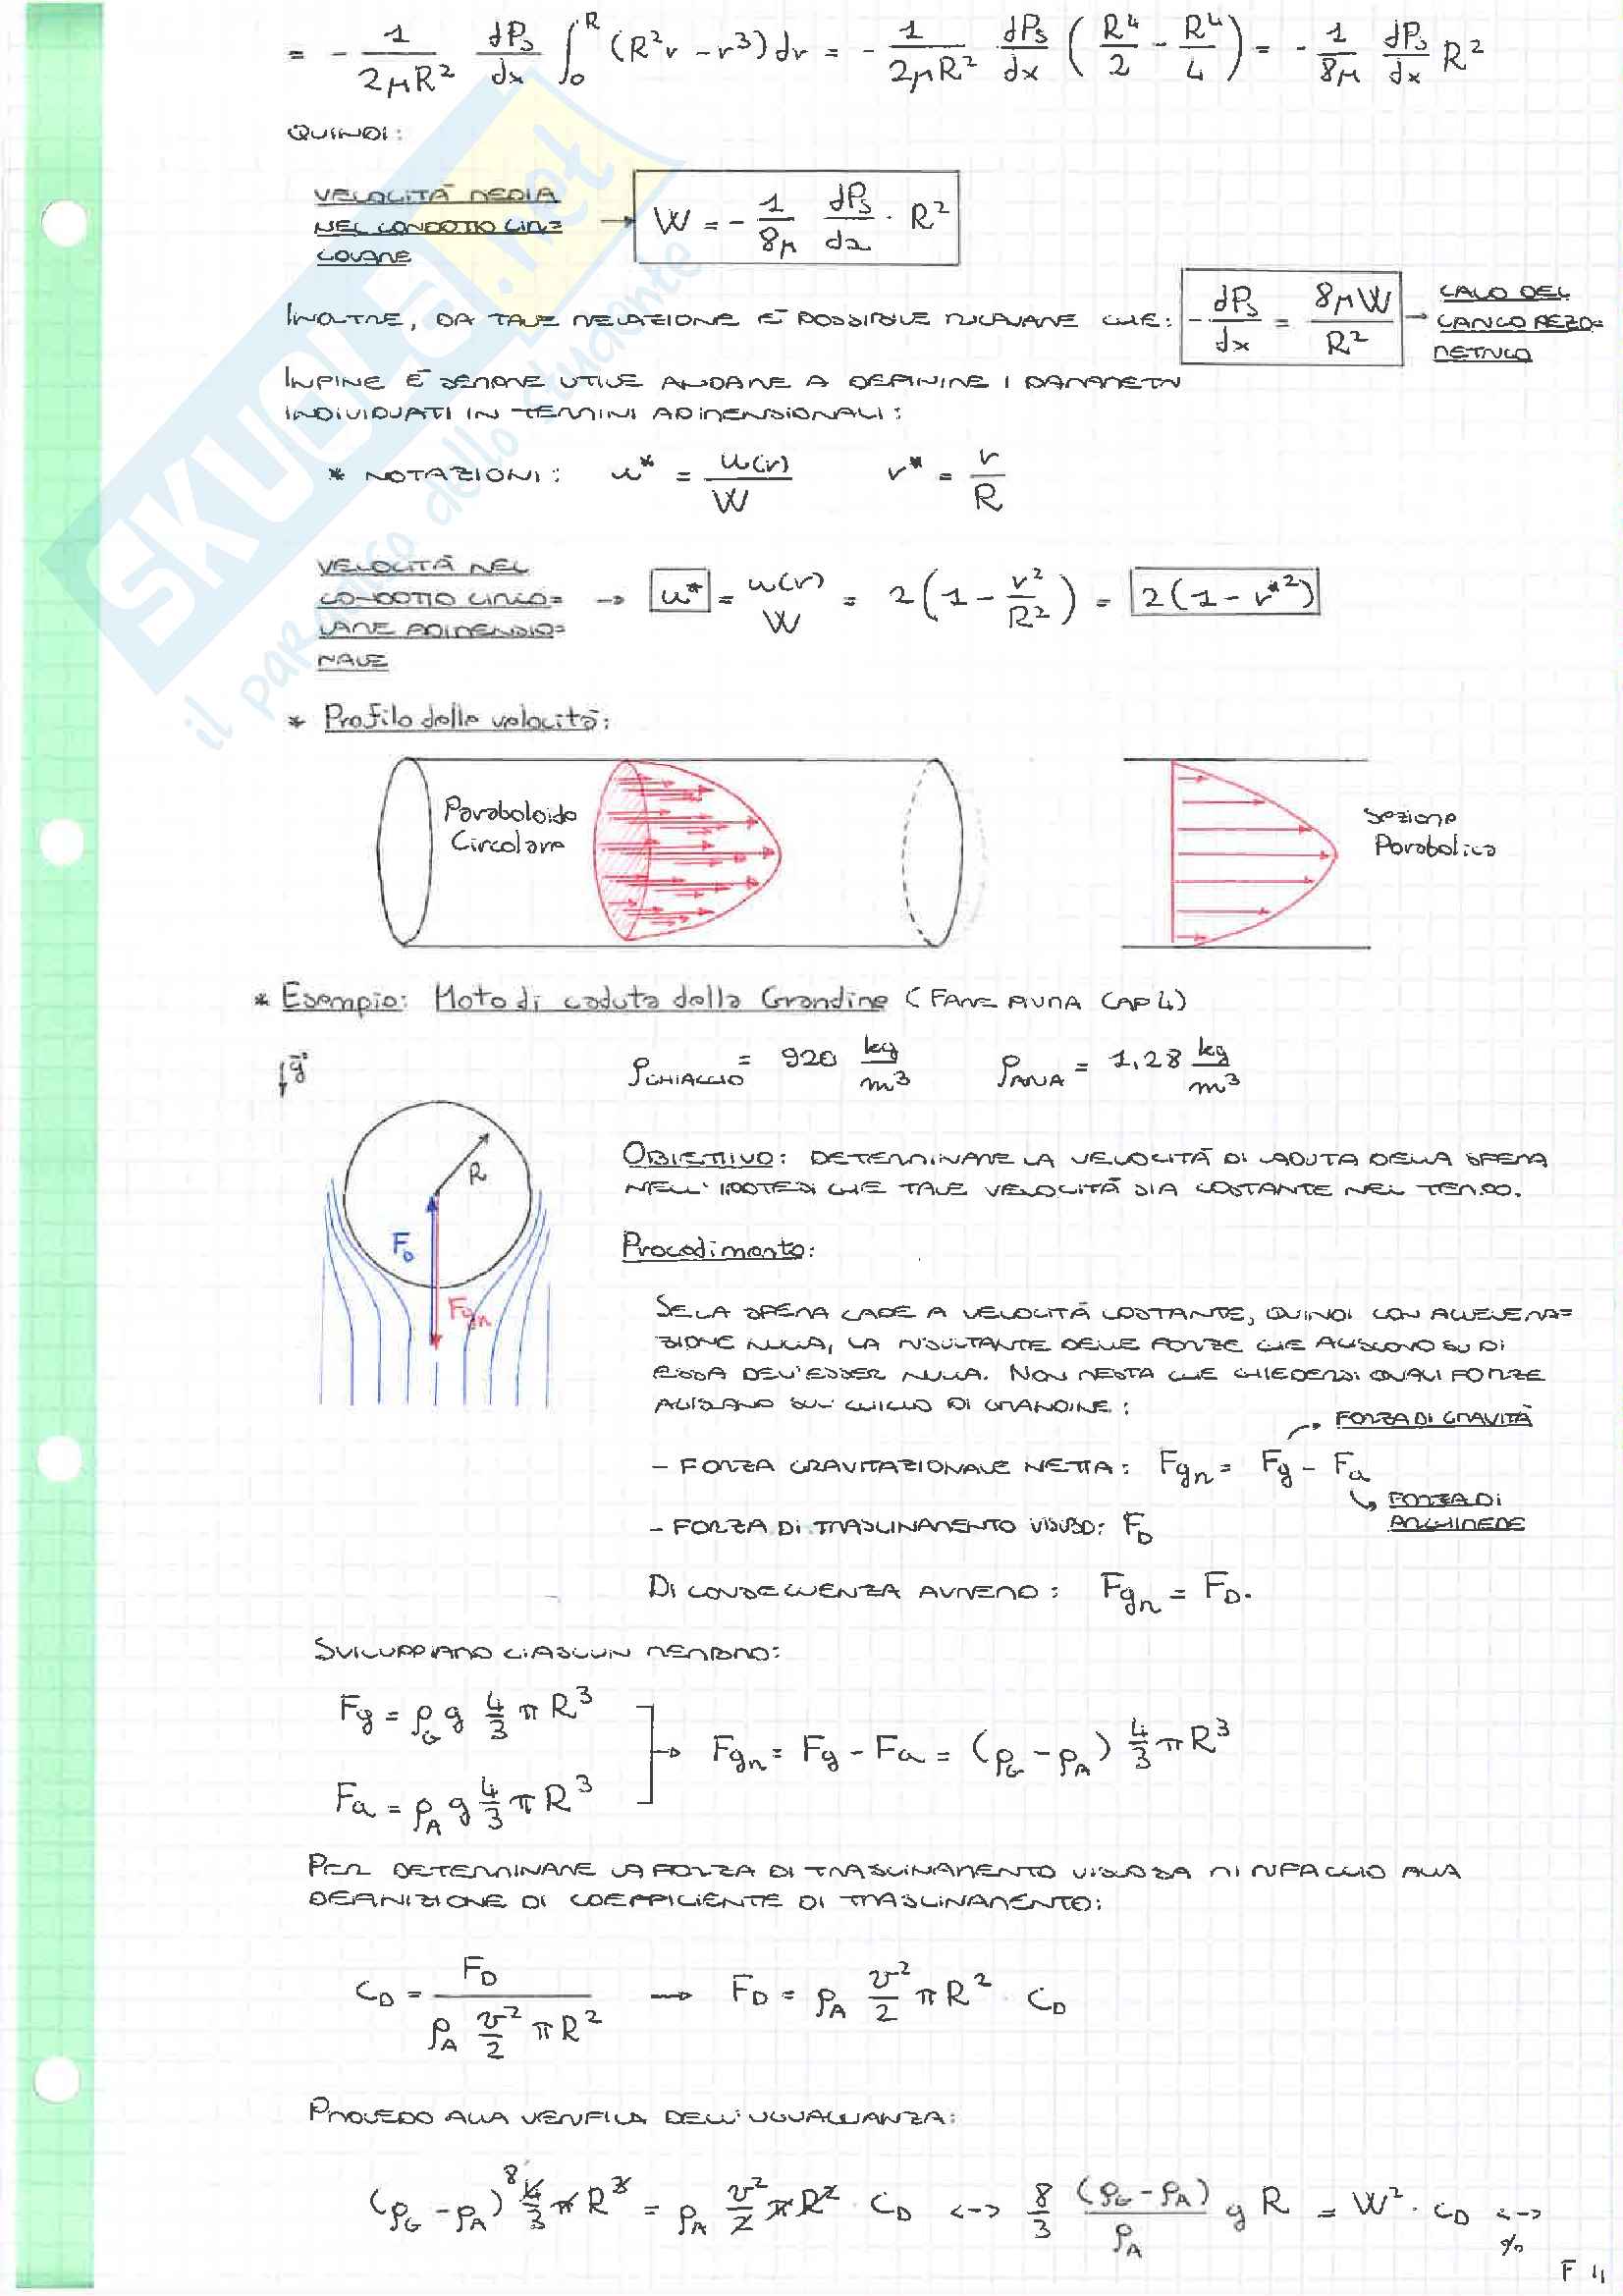 = - 1/(2μR²) dPs/dx ∫₀ᴿ (R²r - r³) dr = - 1/(2μR²) dPs/dx (R⁴/2 - R⁴/4) = - 1/(8μ) dPs/dx R²
QUINDI:
VELOCITÀ MEDIA
NEL CONDOTTO CIR=
COLARE
→ W = - 1/(8μ) dPs/dx · R²
INOLTRE, DA TALE RELAZIONE È POSSIBILE RICAVARE CHE: - dPs/dx = 8μW/R² →
CALO DEL
CARICO PIEZO=
METRICO
INFINE È SEMPRE UTILE ANDARE A DEFINIRE I PARAMETRI
INDIVIDUATI IN TERMINI ADIMENSIONALI:
* NOTAZIONI: u* = u(r)/W r* = r/R
VELOCITÀ NEL
CONDOTTO CIRCO=
LARE ADIMENSIO=
NALE
→ u* = u(r)/W = 2(1 - r²/R²) = 2(1 - r*²)
* Profilo delle velocità:
Paraboloide
Circolare
Sezione
Parabolica
* Esempio: Moto di caduta della Grandine (FINE AULA CAP 4)
g
ρGHIACCIO = 920 kg/m³ ρARIA = 1,28 kg/m³
R
F_D
Fgn
OBIETTIVO: DETERMINARE LA VELOCITÀ DI CADUTA DELLA SFERA
NELL'IPOTESI CHE TALE VELOCITÀ SIA COSTANTE NEL TEMPO.
Procedimento:
SE LA SFERA CADE A VELOCITÀ COSTANTE, QUINDI CON ACCELERA=
ZIONE NULLA, LA RISULTANTE DELLE FORZE CHE AGISCONO SU DI
ESSA DEV'ESSER NULLA. NON RESTA CHE CHIEDERSI QUALI FORZE
AGISCANO SUL CHICCO DI GRANDINE:
FORZA DI GRAVITÀ
- FORZA GRAVITAZIONALE NETTA: Fgn = Fg - Fa
FORZA DI
ARCHIMEDE
- FORZA DI TRASCINAMENTO VISCOSO: F_D
DI CONSEGUENZA AVREMO: Fgn = F_D.
SVILUPPIAMO CIASCUN MEMBRO:
Fg = ρG g 4/3 π R³
→ Fgn = Fg - Fa = (ρG - ρA) 4/3 π R³
Fa = ρA g 4/3 π R³
PER DETERMINARE LA FORZA DI TRASCINAMENTO VISCOSA MI RIFACCIO ALLA
DEFINIZIONE DI COEFFICIENTE DI TRASCINAMENTO:
C_D = F_D/(ρA v²/2 πR²) → F_D = ρA v²/2 πR² · C_D
PROCEDO ALLA VERIFICA DELL'UGUAGLIANZA:
(ρG - ρA) 8 4/3 π R³ = ρA v²/2 π R² · C_D <-> 8/3 (ρG - ρA)/ρA g R = W² · C_D <->
%
F 4
SKUOLA.net
il paradiso dello studente